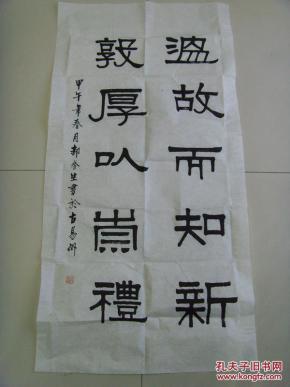 温故而知新
敦厚以崇禮
甲午年春月郝
生書於古易州
孔夫子旧书网
www.kongfz.com